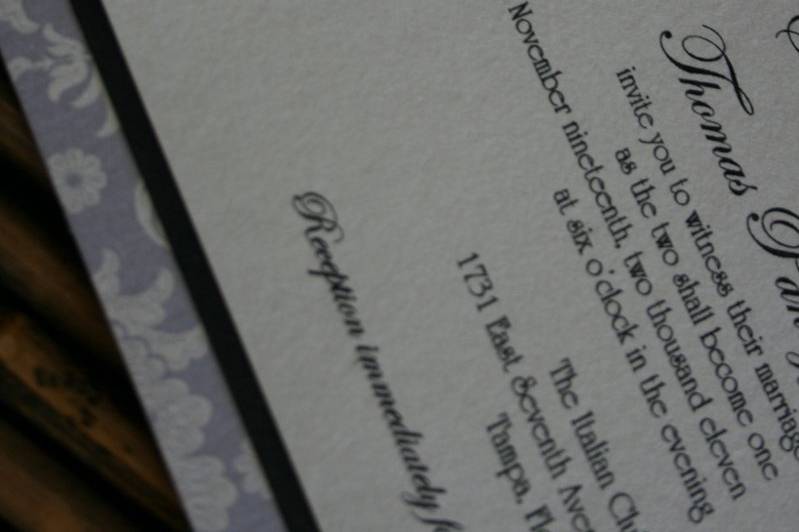 an
Thomas
invite you to witness their marriage
as the two shall become one
November nineteenth, two thousand eleven
at six o'clock in the evening
The Italian
1731 East Seventh Ave
Tampa,
Reception immediately